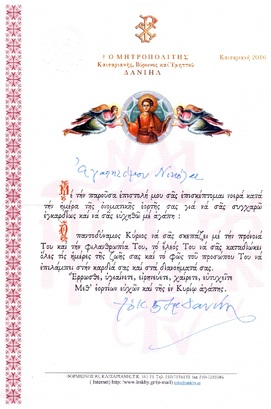 † Ο ΜΗΤΡΟΠΟΛΙΤΗΣ
Καισαριανῆς, Βύρωνος καὶ Ὑμηττοῦ
ΔΑΝΙΗΛ
Καισαριανή
Ἀγαπητέ μου Νικόλαε
Μὲ τὴν παροῦσα ἐπιστολή μου σᾶς ἐπισκέπτομαι νοερὰ κατὰ
τὴν ἡμέρα τῆς ὀνομαστικῆς ἑορτῆς σας γιὰ νὰ σᾶς συγχαρῶ
ἐγκαρδίως καὶ νὰ σᾶς εὐχηθῶ μὲ ἀγάπη:
Ὁ παντοδύναμος Κύριος νὰ σᾶς σκεπάζει μὲ τὴν πρόνοιά
Του καὶ τὴν φιλανθρωπία Του, τὸ ἔλεός Του νὰ σᾶς καταδιώκει
ὅλες τὶς ἡμέρες τῆς ζωῆς σας καὶ τὸ φῶς τοῦ προσώπου Του νὰ
ἐπιλάμπει στὴν καρδιά σας καὶ στὰ διανοήματά σας.
Ἔρρωσθε, ὑγιαίνετε, εἰρηνεύετε, χαίρετε, εὐτυχεῖτε
Μεθ' ἑορτίων εὐχῶν καὶ τῆς ἐν Κυρίῳ ἀγάπης.